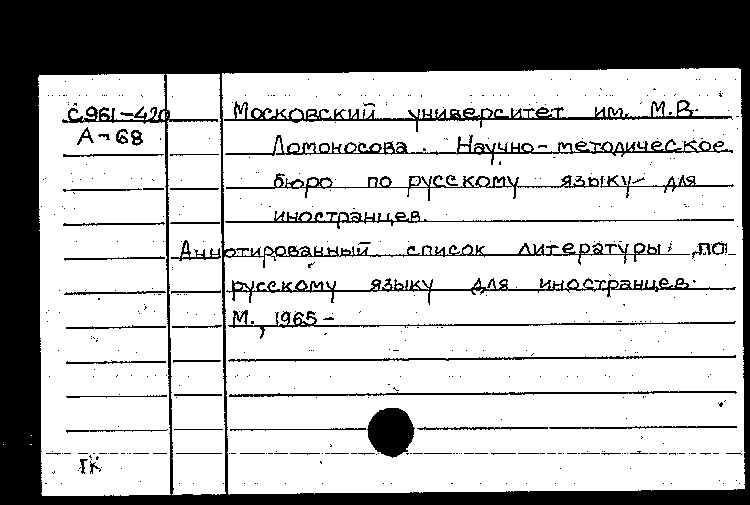 С.961-420 Московский университет им. М.В.
А-68 Ломоносова. Научно-методическое
бюро по русскому языку для
иностранцев.
Аннотированный список литературы по
русскому языку для иностранцев.
М., 1965-
ГК